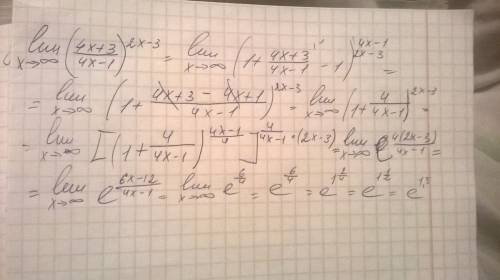 lim x→∞ (4x+3 / 4x-1)^2x-3 = lim x→∞ (1 + 4x+3 / 4x-1 - 1)^2x-3 =
= lim x→∞ (1 + 4x+3-4x+1 / 4x-1)^2x-3 = lim x→∞ (1 + 4 / 4x-1)^2x-3 =
= lim x→∞ [(1 + 4 / 4x-1)^4x-1 / 4]^4 / 4x-1 · (2x-3) = lim x→∞ e^4(2x-3) / 4x-1 =
= lim x→∞ e^6x-12 / 4x-1 = lim x→∞ e^6/4 = e^6/4 = e^1 2/4 = e^1 1/2 = e^1,5